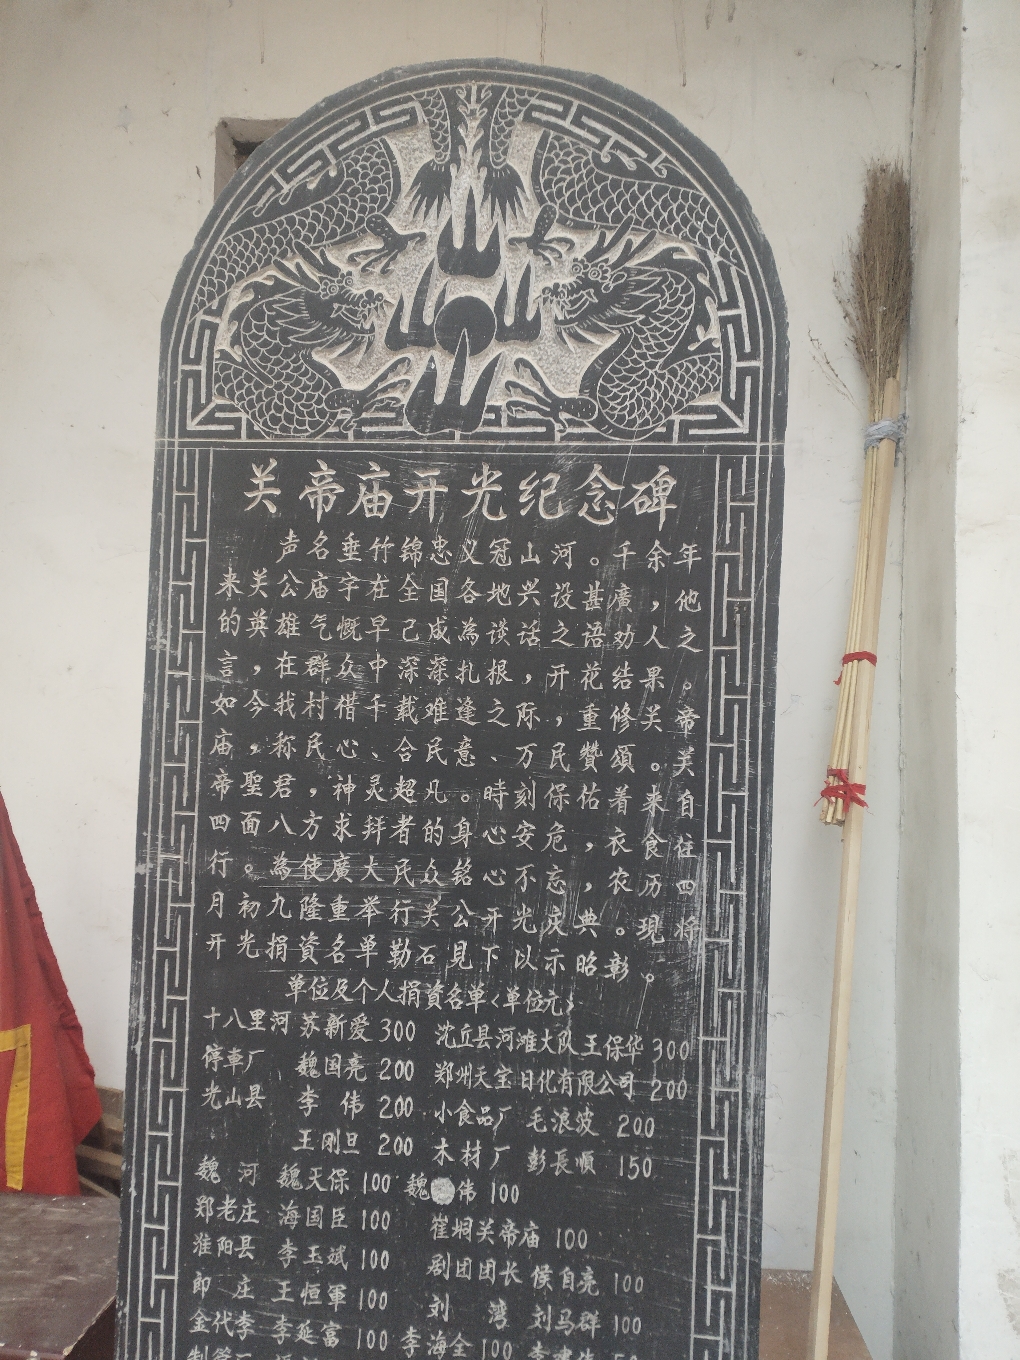 关帝庙开光纪念碑
声名垂竹锦忠义冠山河。千余年
来关公庙宇在全国各地兴设甚廣，他
的英雄气慨早己成為谈话之语劝人之
言，在群众中深深扎根，开花结果。
如今我村楷千载难逢之际，重修关帝
庙，称民心、合民意、万民赞頌。关
帝聖君，神灵超凡。時刻保佑着来自
四面八方求拜者的身心安危，衣食住
行。為使廣大民众铭心不忘，农历四
月初九隆重举行关公开光庆典。現将
开光捐資名单勒石見下以示昭彰。
单位及个人捐資名单〈单位元〉
十八里河 苏新爱 300 沈丘县河滩大队王保华 300
停車厂 魏国亮 200 郑州天宝日化有限公司 200
光山县 李伟 200 小食品厂 毛浪波 200
王刚旦 200 木材厂 彭長順 150
魏河 魏天保 100 魏 伟 100
郑老庄 海国臣 100 崔垌关帝庙 100
淮阳县 李玉斌 100 剧团团长 侯自亮 100
郎庄 王恒軍 100 刘湾 刘马群 100
金代李 李延富 100 李海全 100